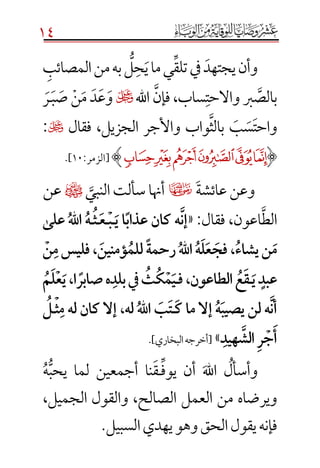 عشر وصايا للوقاية من الوباء ١٤
وأن يجتهدَ في تلقِّي ما يَحِلُّ به من المصائبِ
بالصَّبرِ والاحتِساب، فإنَّ الله ﷻ وَعَدَ مَنْ صَبَرَ
واحتَسَبَ بالثَّواب والأجر الجزيل، فقال ﷻ:
﴿إِنَّمَا يُوَفَّى ٱلصَّـٰبِرُونَ أَجْرَهُم بِغَيْرِ حِسَابٍ﴾ [الزمر:١٠].
وعن عائشةَ ڤ أنها سألت النبيَّ ﷺ عن
الطَّاعون، فقال: «إنَّه كان عذابًا يَبْعَثُهُ اللهُ على
مَن يشاءُ، فجَعَلَهُ اللهُ رحمةً للمُؤمنينَ، فليس مِنْ
عبدٍ يَقَعُ الطاعون، فيَمْكُثُ في بلدِه صابرًا، يَعْلَمُ
أنَّه لن يصيبَهُ إلا ما كَتَبَ اللهُ له، إلا كان له مِثْلُ
أَجْرِ الشَّهيدِ» [أخرجه البخاري].
وأسألُ اللهَ أن يوفِّقَنا أجمعين لما يحبُّهُ
ويرضاه من العمل الصالح، والقول الجميل،
فإنه يقول الحق وهو يهدي السبيل.